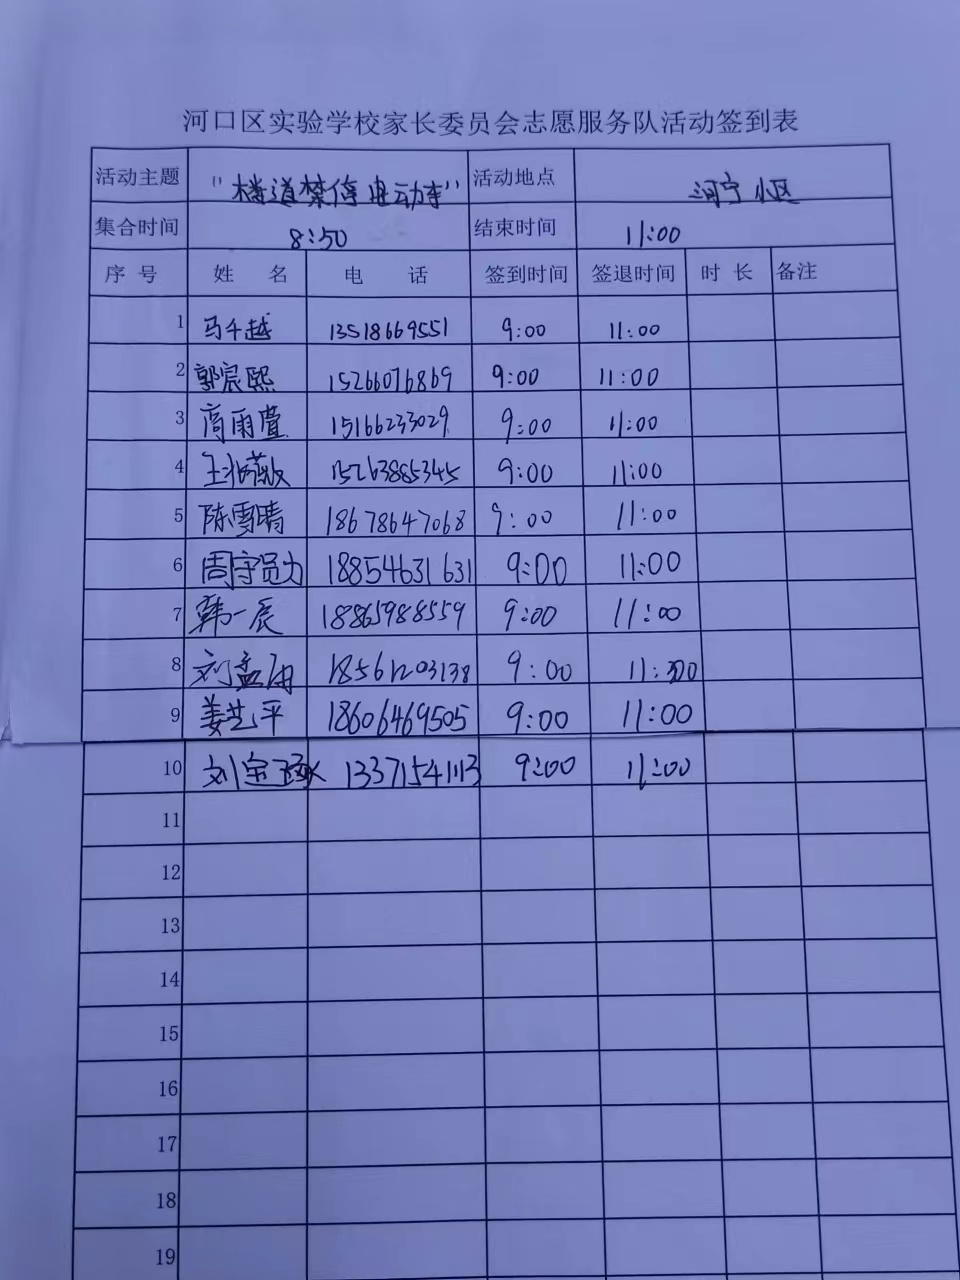 河口区实验学校家长委员会志愿服务队活动签到表
活动主题 "楼道禁停电动车" 活动地点 河宁小区
集合时间 8:50 结束时间 11:00
序号 姓名 电话 签到时间 签退时间 时长 备注
1 马千越 13518669551 9:00 11:00
2 郭宸熙 15266076869 9:00 11:00
3 高雨萱 15166233029 9:00 11:00
4 15263885345 9:00 11:00
5 陈雪晴 18678647068 9:00 11:00
6 周守勋 18854631631 9:00 11:00
7 韩一辰 18865988559 9:00 11:00
8 刘孟雨 18561203138 9:00 11:00
9 姜艺平 18606469505 9:00 11:00
10 刘宝 13371541113 9:00 11:00
11
12
13
14
15
16
17
18
19